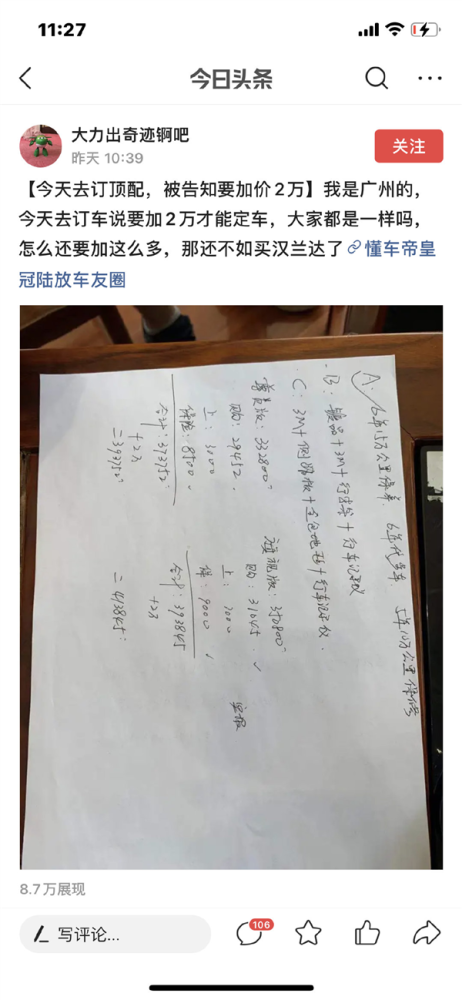 11:27
今日头条
大力出奇迹锕吧
昨天 10:39
关注
【今天去订顶配，被告知要加价2万】我是广州的，
今天去订车说要加2万才能定车，大家都是一样吗，
怎么还要加这么多，那还不如买汉兰达了 懂车帝皇
冠陆放车友圈
A: 6年15万公里保养. 6年代步车 5年10万公里保修
B: 赠品+3M+行李架+行车记录仪
C: 3M+钢踏板+全包地毯+行车记录仪.
尊贵版: 332800
购: 29452.
上: 3000
保险: 8500
合计: 373752
+2万
=393752
旗舰版: 350800
购: 31045.
上: 3000
保: 9000
合计: 393845
+2万
=413845.
8.7万展现
写评论...
106